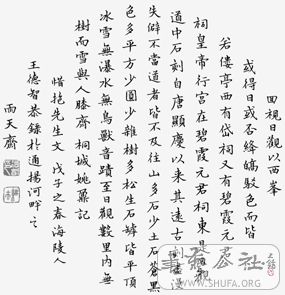 回視日觀以西峯
或得日或否絳皓駁色而皆
若僂亭西有岱祠又有碧霞元
祠皇帝行宮在碧霞元君祠東是觀
道中石刻自唐顯慶以來其遠古刻漫
失僻不當道者皆不及往山多石少土石蒼黑
色多平方少圜少雜樹多松生石罅皆平頂
冰雪無瀑水無鳥獸音蹟至日觀數里內無
樹而雪與人膝齊 桐城姚鼐記
惜抱先生文 戊子之春海陵人
王德智恭錄於通揚河畔之
雨天齋